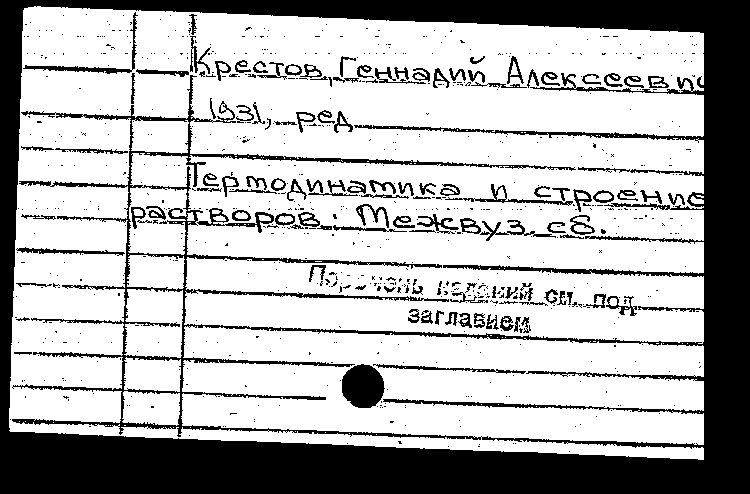 Крестов, Геннадий Алексеевич
1931, ред
Термодинамика и строение
растворов: Межвуз. сб.
Перечень изданий см. под
заглавием